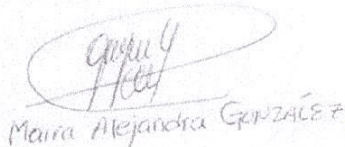 Maira Alejandra GONZÁLEZ